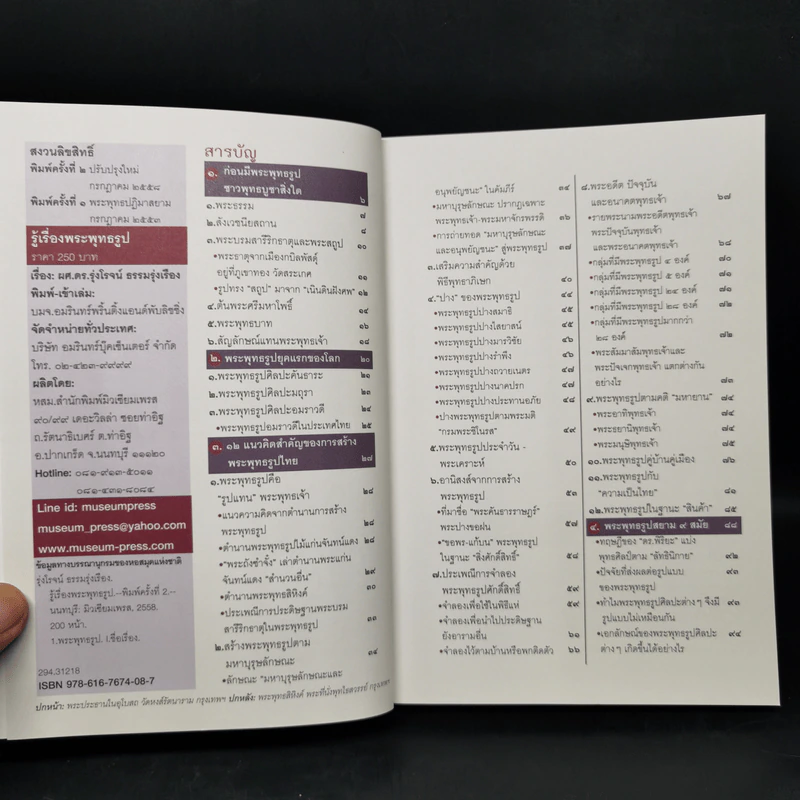 สงวนลิขสิทธิ์
พิมพ์ครั้งที่ ๒ ปรับปรุงใหม่
กรกฎาคม ๒๕๕๘
พิมพ์ครั้งที่ ๑ พระพุทธปฏิมาสยาม
กรกฎาคม ๒๕๕๓
รู้เรื่องพระพุทธรูป
ราคา 250 บาท
เรื่อง: ผศ.ดร.รุ่งโรจน์ ธรรมรุ่งเรือง
พิมพ์-เข้าเล่ม:
บมจ.อมรินทร์พริ้นติ้งแอนด์พับลิชชิ่ง
จัดจำหน่ายทั่วประเทศ:
บริษัท อมรินทร์บุ๊คเซ็นเตอร์ จำกัด
โทร. ๐๒-๔๒๓-๙๙๙๙
ผลิตโดย:
หสม.สำนักพิมพ์มิวเซียมเพรส
๙๐/๙๙ เดอะวิลล่า ซอยท่าอิฐ
ถ.รัตนาธิเบศร์ ต.ท่าอิฐ
อ.ปากเกร็ด จ.นนทบุรี ๑๑๑๒๐
Hotline: ๐๘๑-๙๑๓-๕๐๑๑
๐๘๑-๔๓๑-๘๐๘๔
Line id: museumpress
museum_press@yahoo.com
www.museum-press.com
ข้อมูลทางบรรณานุกรมของหอสมุดแห่งชาติ
รุ่งโรจน์ ธรรมรุ่งเรือง.
รู้เรื่องพระพุทธรูป.--พิมพ์ครั้งที่ 2.--
นนทบุรี: มิวเซียมเพรส, 2558.
200 หน้า.
1.พระพุทธรูป. I.ชื่อเรื่อง.
294.31218
ISBN 978-616-7674-08-7
สารบัญ
๑. ก่อนมีพระพุทธรูป
ชาวพุทธบูชาสิ่งใด ๖
๑.พระธรรม ๗
๒.สังเวชนียสถาน ๘
๓.พระบรมสารีริกธาตุและพระสถูป ๑๐
•พระธาตุจากเมืองกบิลพัสดุ์
อยู่ที่ภูเขาทอง วัดสระเกศ ๑๑
•รูปทรง "สถูป" มาจาก "เนินดินฝังศพ" ๑๒
๔.ต้นพระศรีมหาโพธิ์ ๑๔
๕.พระพุทธบาท ๑๖
๖.สัญลักษณ์แทนพระพุทธเจ้า ๑๘
๒. พระพุทธรูปยุคแรกของโลก ๒๐
๑.พระพุทธรูปศิลปะคันธาระ ๒๑
๒.พระพุทธรูปศิลปะมถุรา ๒๓
๓.พระพุทธรูปศิลปะอมราวดี ๒๔
•พระพุทธรูปอมราวดีในประเทศไทย ๒๕
๓. ๑๒ แนวคิดสำคัญของการสร้าง
พระพุทธรูปไทย ๒๗
๑.พระพุทธรูปคือ
"รูปแทน" พระพุทธเจ้า ๒๘
•แนวความคิดจากตำนานการสร้าง
พระพุทธรูป ๒๘
•ตำนานพระพุทธรูปไม้แก่นจันทน์แดง ๒๘
•"พระถังซำจั๋ง" เล่าตำนานพระแก่น
จันทน์แดง "สำนวนอื่น" ๒๙
•ตำนานพระพุทธสิหิงค์ ๓๐
•ประเพณีการประดิษฐานพระบรม
สารีริกธาตุในพระพุทธรูป ๓๑
๒.สร้างพระพุทธรูปตาม
มหาบุรุษลักษณะ ๓๔
•ลักษณะ "มหาบุรุษลักษณะและ
ปกหน้า: พระประธานในอุโบสถ วัดหงส์รัตนาราม กรุงเทพฯ ปกหลัง: พระพุทธสิหิงค์ พระที่นั่งพุทไธสวรรย์ กรุงเทพฯ
อนุพยัญชนะ" ในคัมภีร์ ๓๔
•มหาบุรุษลักษณะ ปรากฏเฉพาะ
พระพุทธเจ้า-พระมหาจักรพรรดิ ๓๖
•การถ่ายทอด "มหาบุรุษลักษณะ
และอนุพยัญชนะ" สู่พระพุทธรูป ๓๗
๓.เสริมความสำคัญด้วย
พิธีพุทธาภิเษก ๔๐
๔."ปาง" ของพระพุทธรูป ๔๔
•พระพุทธรูปปางสมาธิ ๔๕
•พระพุทธรูปปางไสยาสน์ ๔๕
•พระพุทธรูปปางมารวิชัย ๔๖
•พระพุทธรูปปางรำพึง ๔๗
•พระพุทธรูปปางถวายเนตร ๔๗
•พระพุทธรูปปางนาคปรก ๔๗
•พระพุทธรูปปางประทานอภัย ๔๘
•ปางพระพุทธรูปตามพระมติ
"กรมพระชิโนรส" ๔๙
๕.พระพุทธรูปประจำวัน -
พระเคราะห์ ๕๐
๖.อานิสงส์จากการสร้าง
พระพุทธรูป ๕๓
•ที่มาชื่อ "พระคันธารราษฎร์"
พระปางขอฝน ๕๗
•"ขอพร-แก้บน" พระพุทธรูป
ในฐานะ "สิ่งศักดิ์สิทธิ์" ๕๘
๗.ประเพณีการจำลอง
พระพุทธรูปศักดิ์สิทธิ์ ๕๙
•จำลองเพื่อใช้ในพิธีแห่ ๕๙
•จำลองเพื่อนำไปประดิษฐาน
ยังอารามอื่น ๖๑
•จำลองไว้ตามบ้านหรือพกติดตัว ๖๖
๘.พระอดีต ปัจจุบัน
และอนาคตพุทธเจ้า ๖๗
•รายพระนามพระอดีตพุทธเจ้า
พระปัจจุบันพุทธเจ้า
และพระอนาคตพุทธเจ้า ๖๘
•กลุ่มที่มีพระพุทธรูป ๔ องค์
•กลุ่มที่มีพระพุทธรูป ๕ องค์ ๗๑
•กลุ่มที่มีพระพุทธรูป ๒๔ องค์ ๗๑
•กลุ่มที่มีพระพุทธรูป ๒๘ องค์ ๗๒
•กลุ่มที่มีพระพุทธรูปมากกว่า
๒๘ องค์ ๗๒
•พระสัมมาสัมพุทธเจ้าและ
พระปัจเจกพุทธเจ้า แตกต่างกัน
อย่างไร ๗๓
๙.พระพุทธรูปตามคติ "มหายาน" ๗๓
•พระอาทิพุทธเจ้า ๗๔
•พระธยานิพุทธเจ้า ๗๔
•พระมนุษิพุทธเจ้า ๗๕
๑๐.พระพุทธรูปคู่บ้านคู่เมือง ๗๖
๑๑.พระพุทธรูปกับ
"ความเป็นไทย" ๘๑
๑๒.พระพุทธรูปในฐานะ "สินค้า" ๘๕
๔. พระพุทธรูปสยาม ๙ สมัย
•ทฤษฎีของ "ดร.พิริยะ" แบ่ง
พุทธศิลป์ตาม "ลัทธินิกาย" ๙๒
•ปัจจัยที่ส่งผลต่อรูปแบบ
ของพระพุทธรูป ๙๓
•ทำไมพระพุทธรูปศิลปะต่างๆ จึงมี
รูปแบบไม่เหมือนกัน ๙๓
•เอกลักษณ์ของพระพุทธรูปศิลปะ ๙๔
ต่างๆ เกิดขึ้นได้อย่างไร